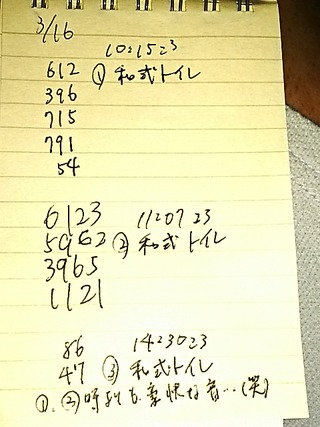 3/16
10:15 23
612 ① 和式トイレ
396
715
791
54
6123 11:07 23
5962 ② 和式トイレ
3965
1121
86 14:30 23
47 ③ 和式トイレ
①、②時より も 豪快な音…(笑)